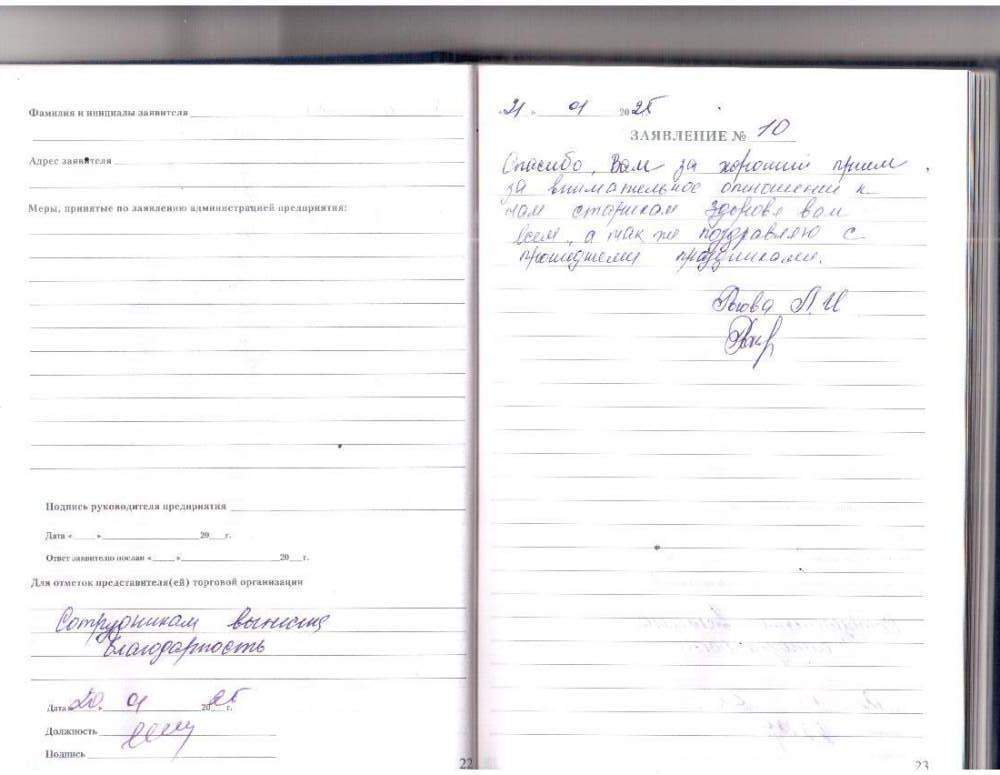 Фамилия и инициалы заявителя
Адрес заявителя
Меры, принятые по заявлению администрацией предприятия:
Подпись руководителя предприятия
Дата «    »    20   г.
Ответ заявителю послан «    »    20   г.
Для отметок представителя(ей) торговой организации
Сотрудникам вынесена
благодарность
Дата «20» 01 2025 г.
Должность
Подпись
22
21 » 01 2025
ЗАЯВЛЕНИЕ № 10
Спасибо, Вам за хороший прием,
за внимательное отношений к
нам старикам здоровя вам
всем, а так же поздравляю с
прошедшеми праздниками.
Л.И
23